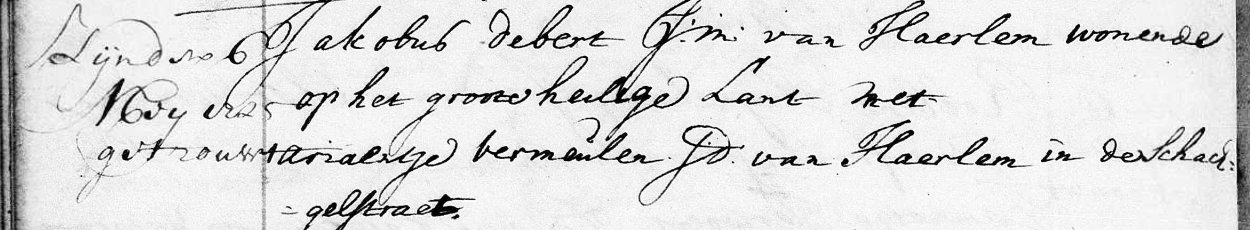 Jakobus debert J:m: van Haerlem wonende
op het groote heilige Lant met
ariaentje vermeulen J:d: van Haerlem in de Schach:
=gelstraet.
6
Meij
getrouwt